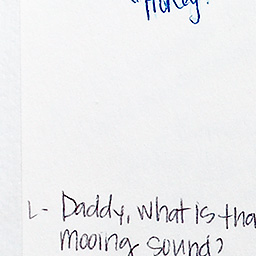 "Honey!
L- Daddy, what is tha
mooing sound?